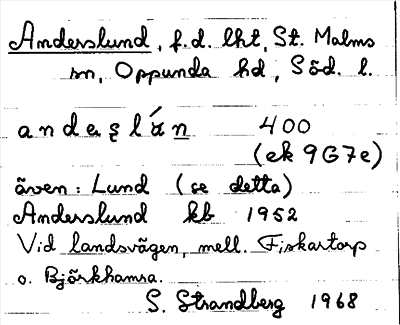 Anderslund, f.d. lht, St. Malms
sn, Oppunda hd, Söd. l.
andaʂlún 400
(ek 9G7e)
även: Lund (se detta)
Anderslund kb 1952
Vid landsvägen, mell. Fiskartorp
o. Björkhamra.
S. Strandberg 1968